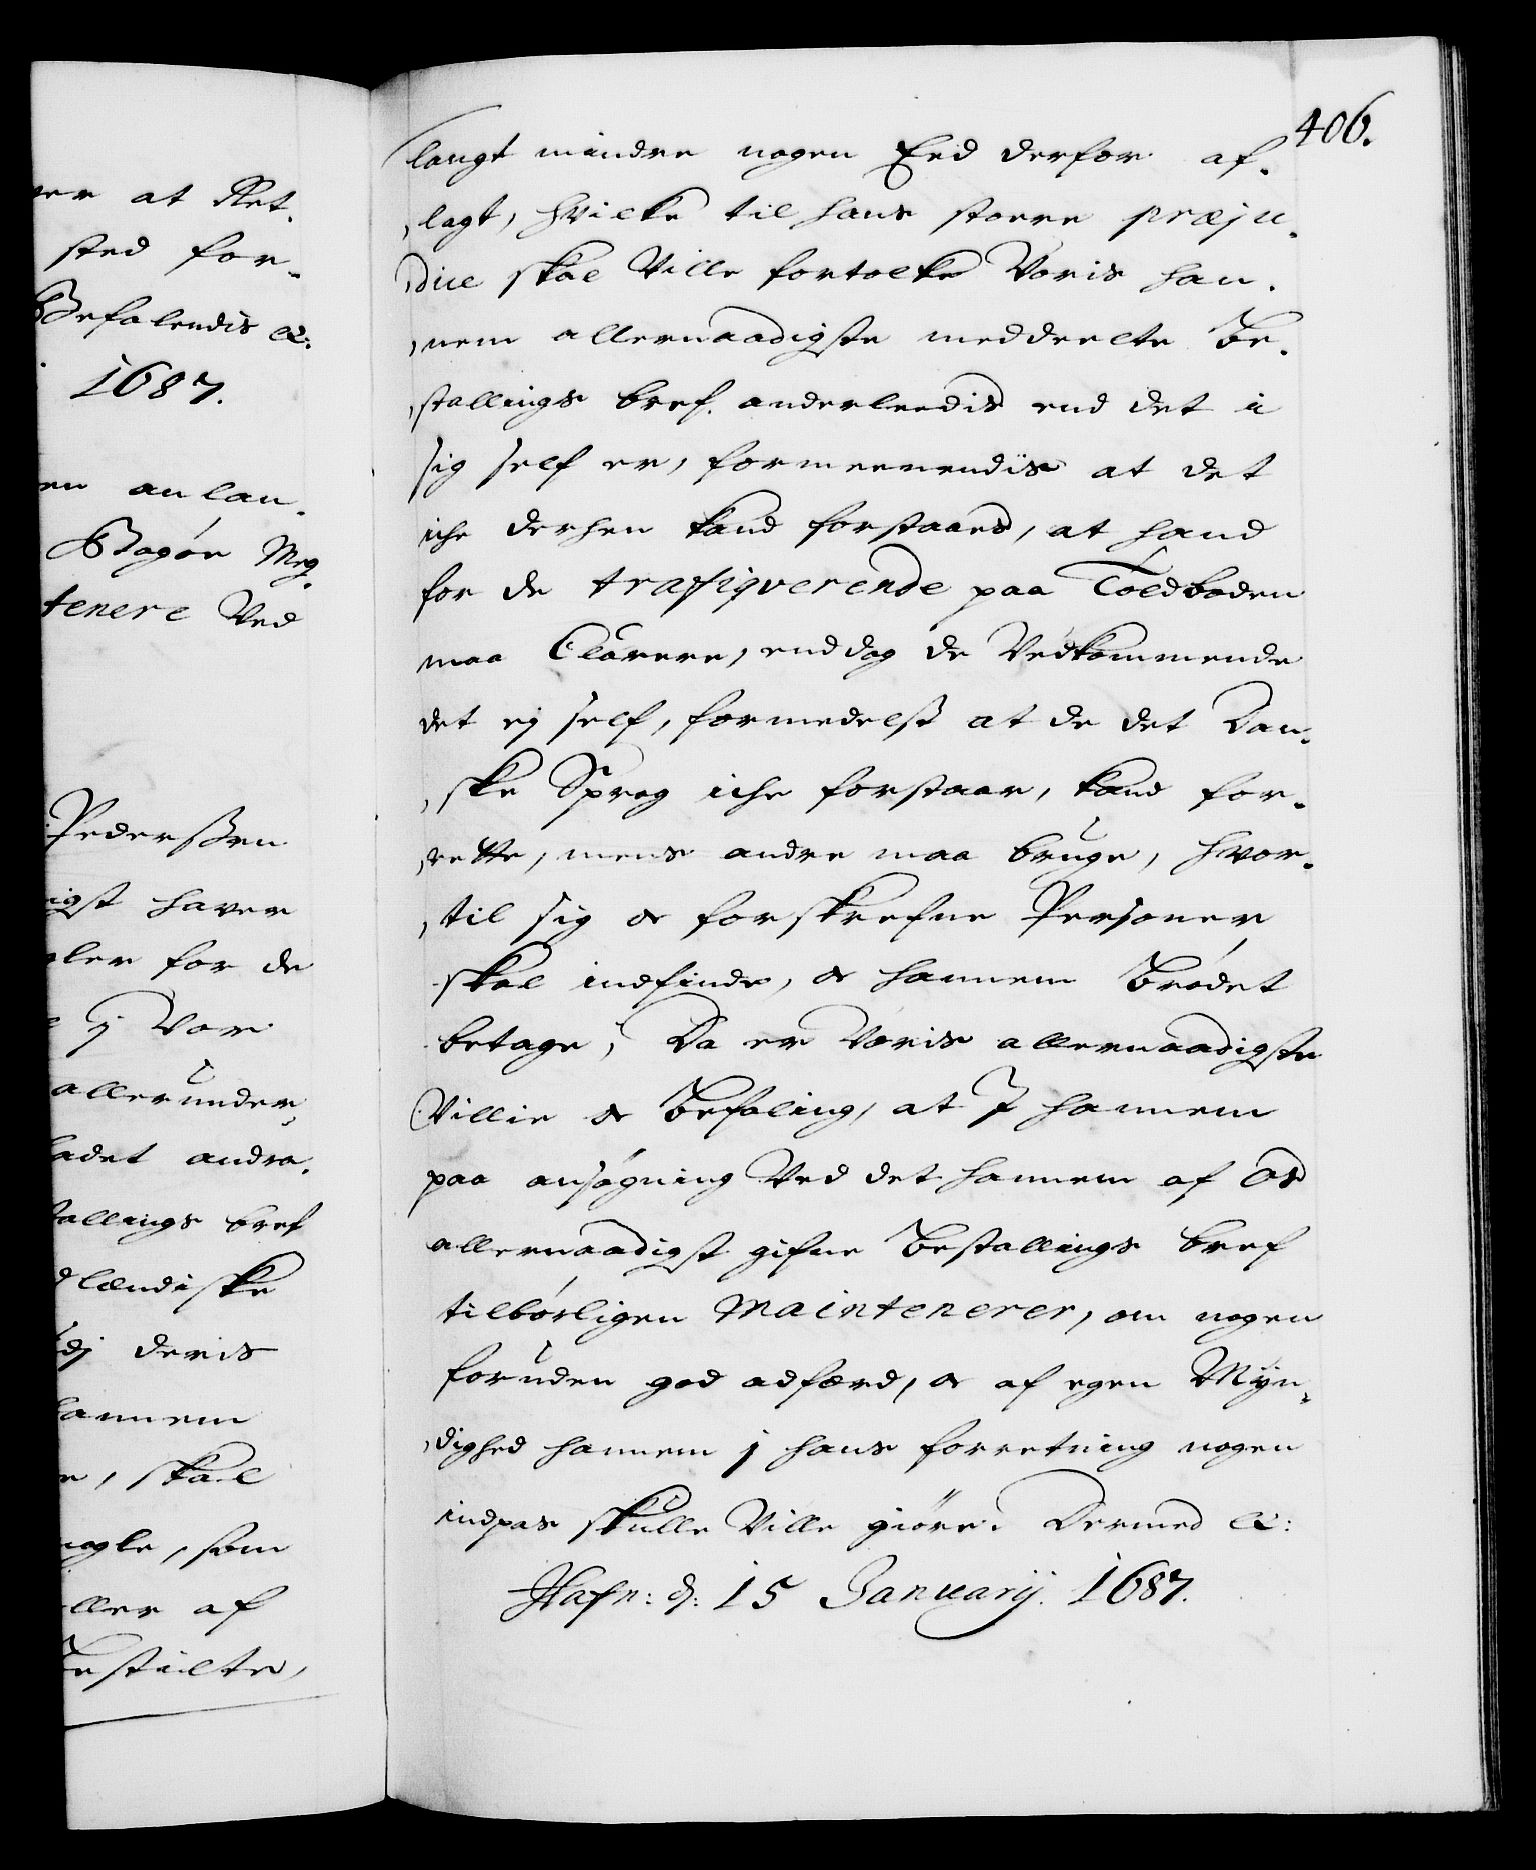 ver at Ret.
sted for-
Befalendis &:
1687.
en anlan.
Bagør Meg
tenere Ved
Pederssen
igst haver
gler for de
j Vor
allerunder,
ladet andra.
tallings bref
dlændiske
dj deris
hannem
e, skal
nogle, som
ller af
Bestilte,
406.
langt mindre nogen Eed derfor af-
,lagt, hvilke til hans stoere præju-
,dice skal Ville fortolke Voris han-
,nem allernaadigste meddeelte Be-
,stallings bref anderleedis end det i
sig self er, formeenendis at det
iche derhen kand forstaaes, at hand
for de trafiqverende paa Toldboden
maa Clarere, enddog de Vedkommende
det ej self, formedelst at de det Dan-
,ske Sprog iche forstaar, kand for-
,rette, mens andre maa bruge, hvor-
,til sig & forskrefne Personer
skal indfinde, & hannem Brødet
betage; Da er Voris allernaadigste
Villie & Befaling, at I hannem
paa ansøgning Ved det hannem af Os
allernaadigst gifne Bestallings bref
tilbørligen Maintenerer, om nogen
foruden god adfærd, & af egen Myn-
,dighed hannem j hans forretning nogen
indpas skulle Ville giøre. Dermed &:
Hafn: d: 15 Januarij. 1687.